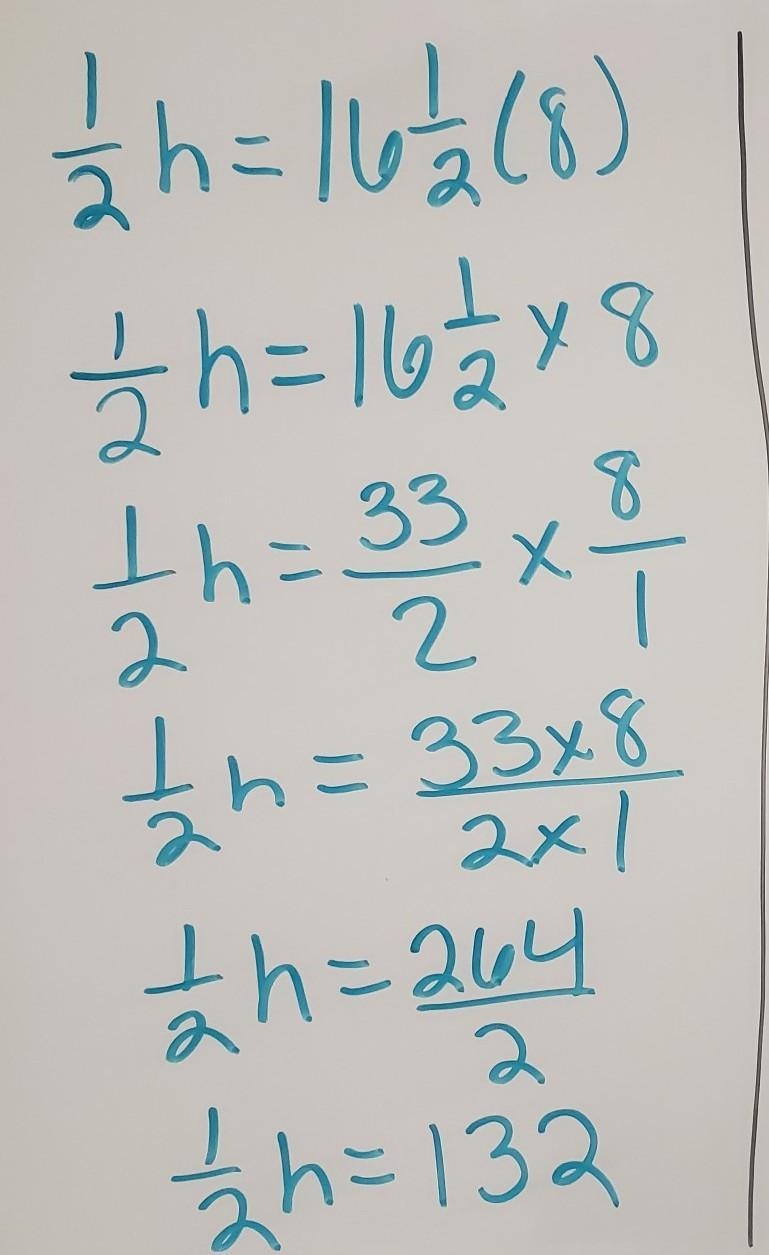 1/2 h = 16 1/2 (8)
1/2 h = 16 1/2 x 8
1/2 h = 33/2 x 8/1
1/2 h = 33x8/2x1
1/2 h = 264/2
1/2 h = 132